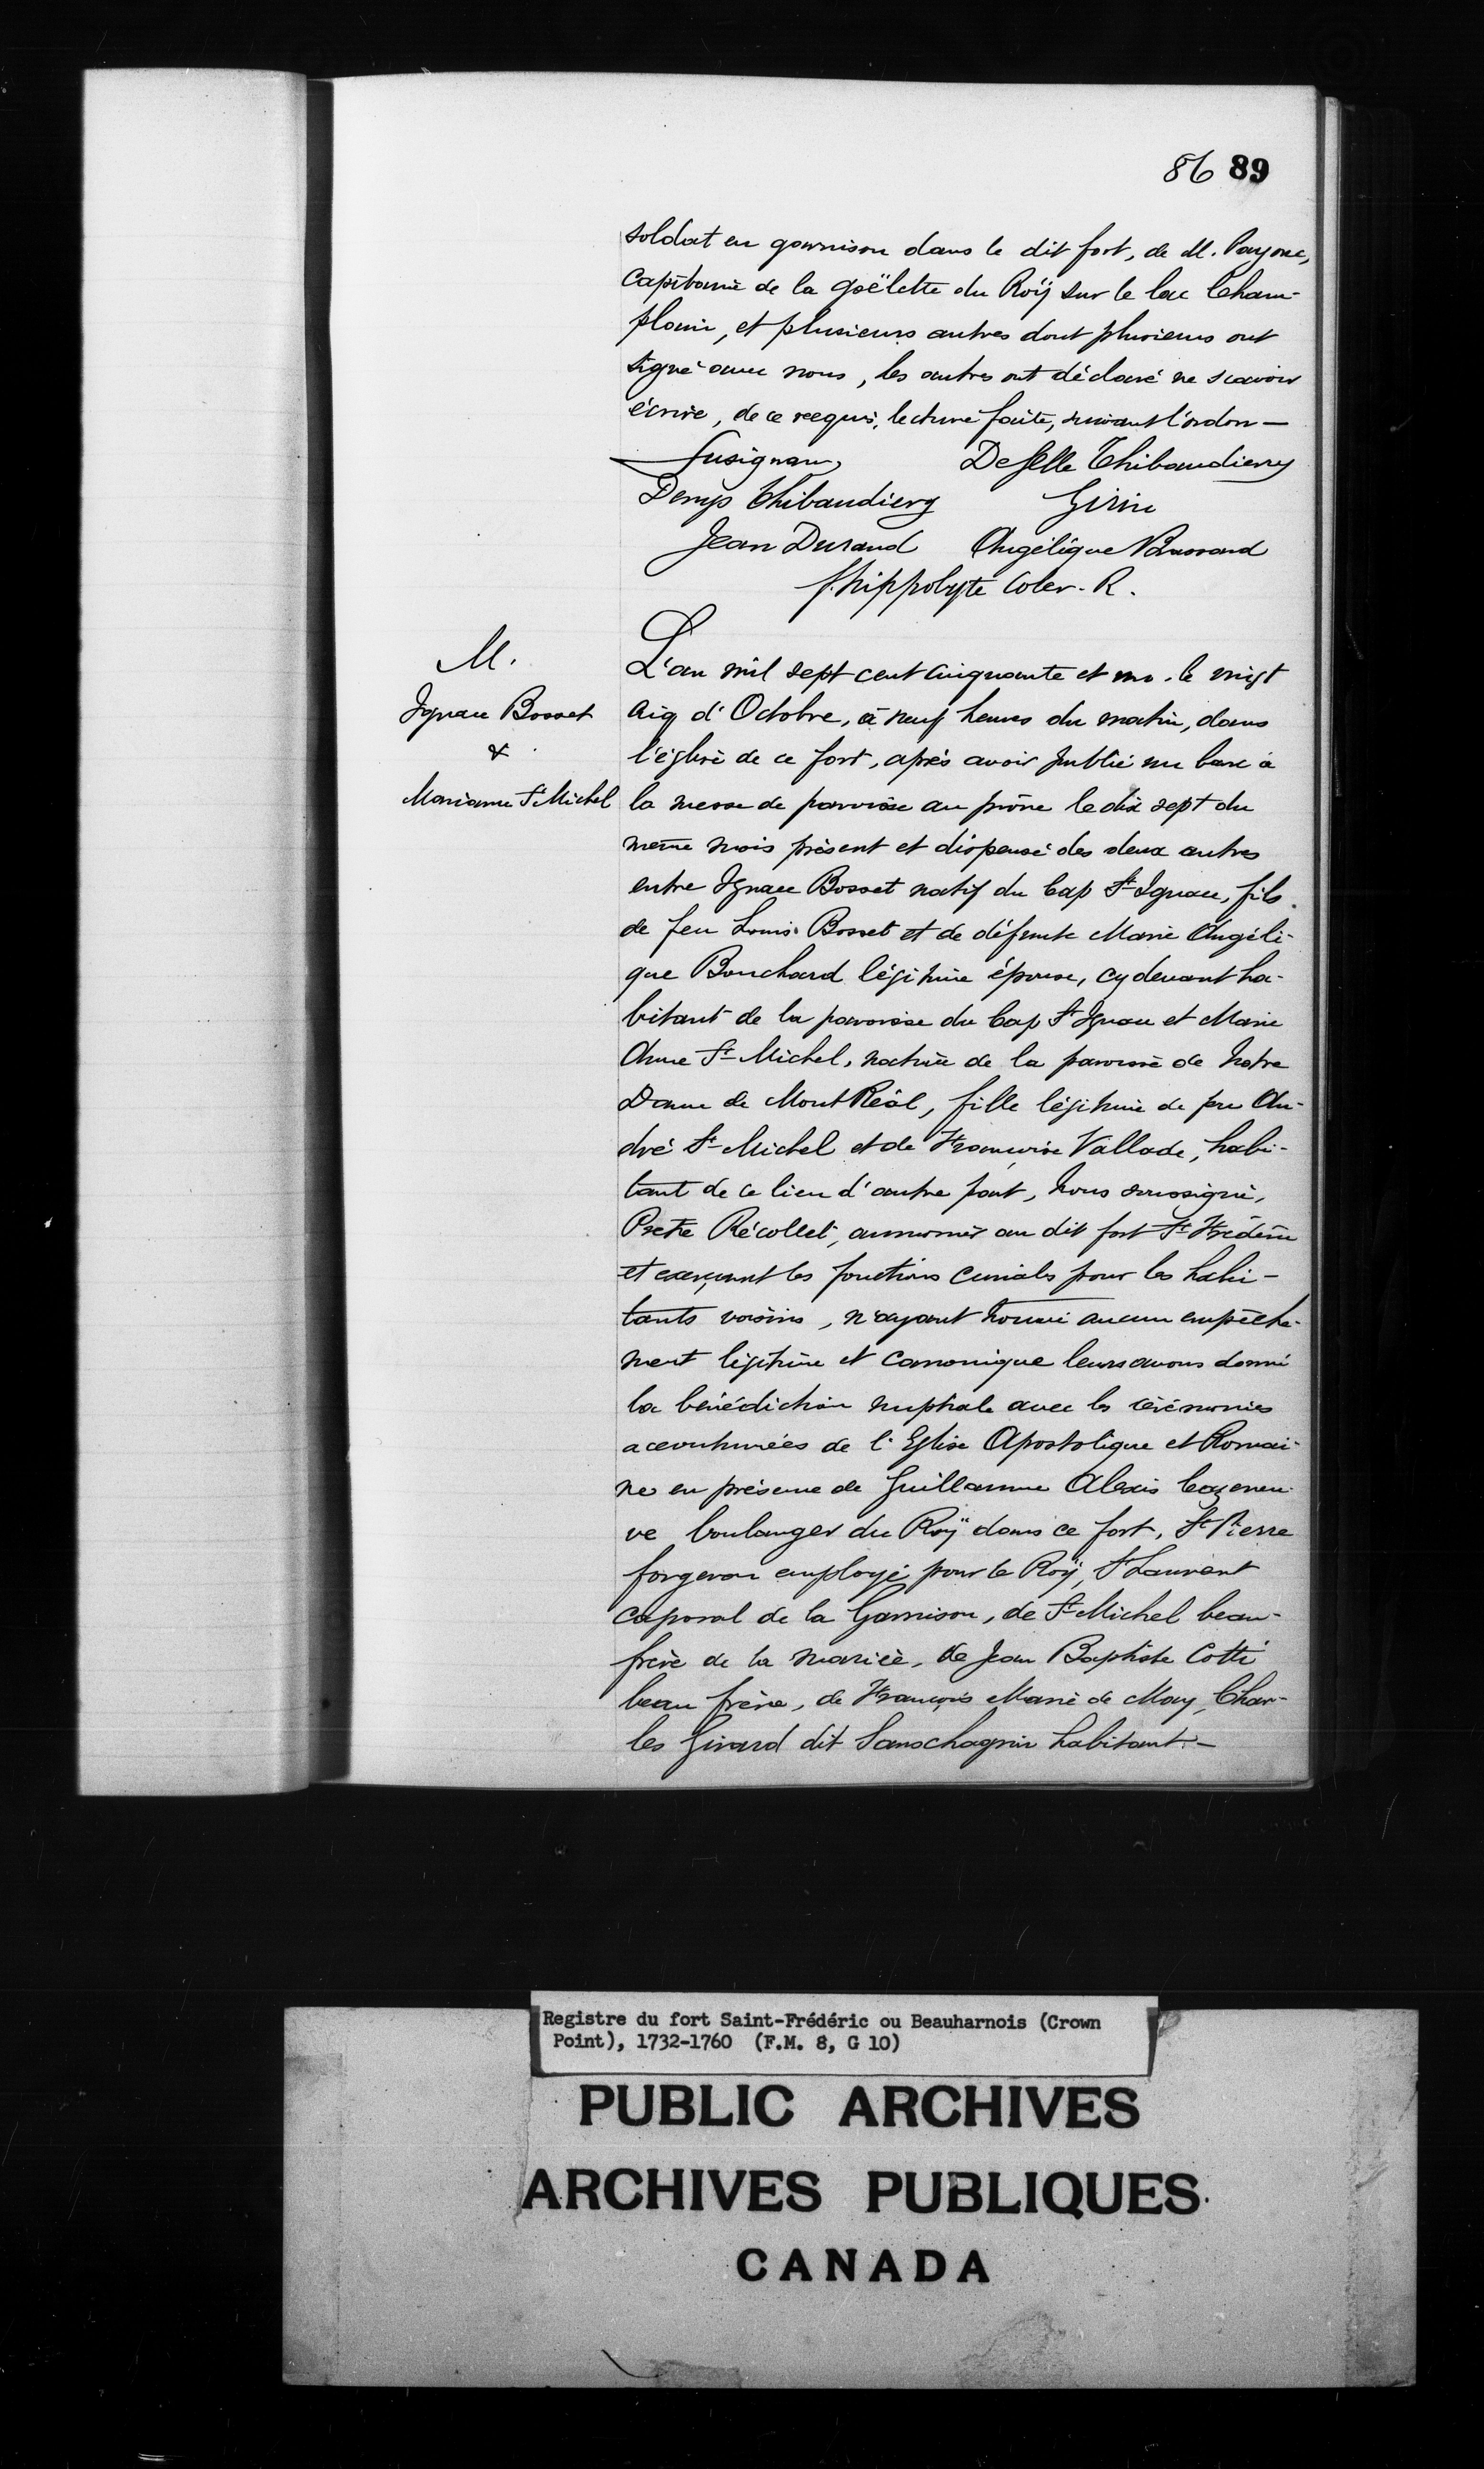 86 89
soldat en garnison dans le dit fort, de M. Payone,
Capitaine de la goëlette du Roÿ sur le lac Cham-
plain, et plusieurs autres dont plusieurs ont
signé avec nous, les autres ont déclaré ne scavoir
écrire, de ce requis, lecture faite, suivant l'ordon—
Lusignan, Deselle Thibaudierg
Denys Thibaudierg Girin
Jean Durand Angélique
f. hippolyte Coler. R.
M.
Ignace Bosset
&
Marianne St Michel
L'an mil sept cent cinquante et un. le vingt
cinq d'Octobre, à neuf heures du matin, dans
l'église de ce fort, après avoir publié un banc à
la messe de paroisse au prône le dix sept du
même mois présent et dispensé des deux autres
entre Ignace Bosset natif du Cap St Ignace, fils
de feu Louis Bosset et de défunte Marie Angéli-
que Bouchard légitime épouse, cy devant ha-
bitant de la paroisse du Cap St Ignace et Marie
Anne St Michel, native de la paroisse de Notre
Dame de MontRéal, fille légitime de feu An-
dré St Michel et de Françoise Vallade, habi-
tant de ce lieu d'autre part, Nous soussigné,
Pretre Récollet, aumonier au dit fort St Frédéric
et exerçant les fonctions curiales pour les habi-
tants voisins, n'ayant trouvé aucun empêche-
ment légitime et canonique leurs avons donné
la bénédiction nuptiale avec les cérémonies
accoutumées de l'Eglise Apostolique et Romai-
ne en présence de Guillaume Alexis Cazeneu-
ve boulanger du Roÿ dans ce fort, St Pierre
forgeron employé pour le Roÿ, St Laurent
caporal de la Garnison, de St Michel beau-
frère de la mariée, de Jean Baptiste Cotté
beau frère, de François Marie de May, Char-
les Girard dit Sanschagrin habitant—
Registre du fort Saint-Frédéric ou Beauharnois (Crown
Point), 1732-1760 (F.M. 8, G 10)
PUBLIC ARCHIVES
ARCHIVES PUBLIQUES
CANADA